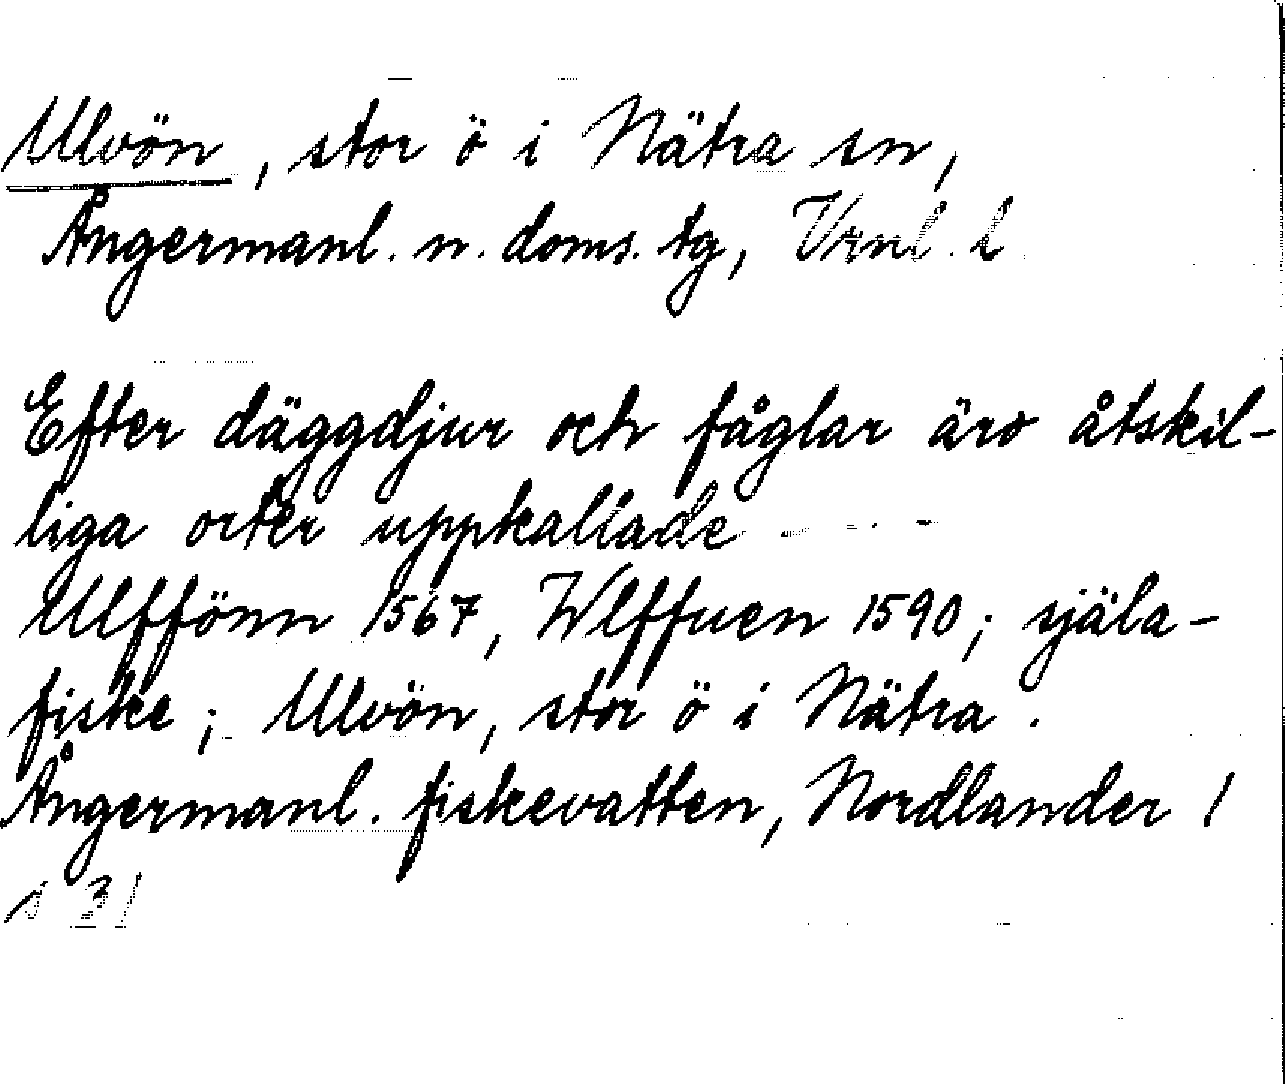 Ulvön, stor ö i Nätra sn,
Ångermanl. n. doms. tg, Vrnl. l
Efter däggdjur och fåglar äro åtskil-
liga orter uppkallade - - - -
Ulffönn 1567, Wlffuen 1590; själa-
fiske; Ulvön, stor ö i Nätra.
Ångermanl. fiskevatten, Nordlander 1
s 31